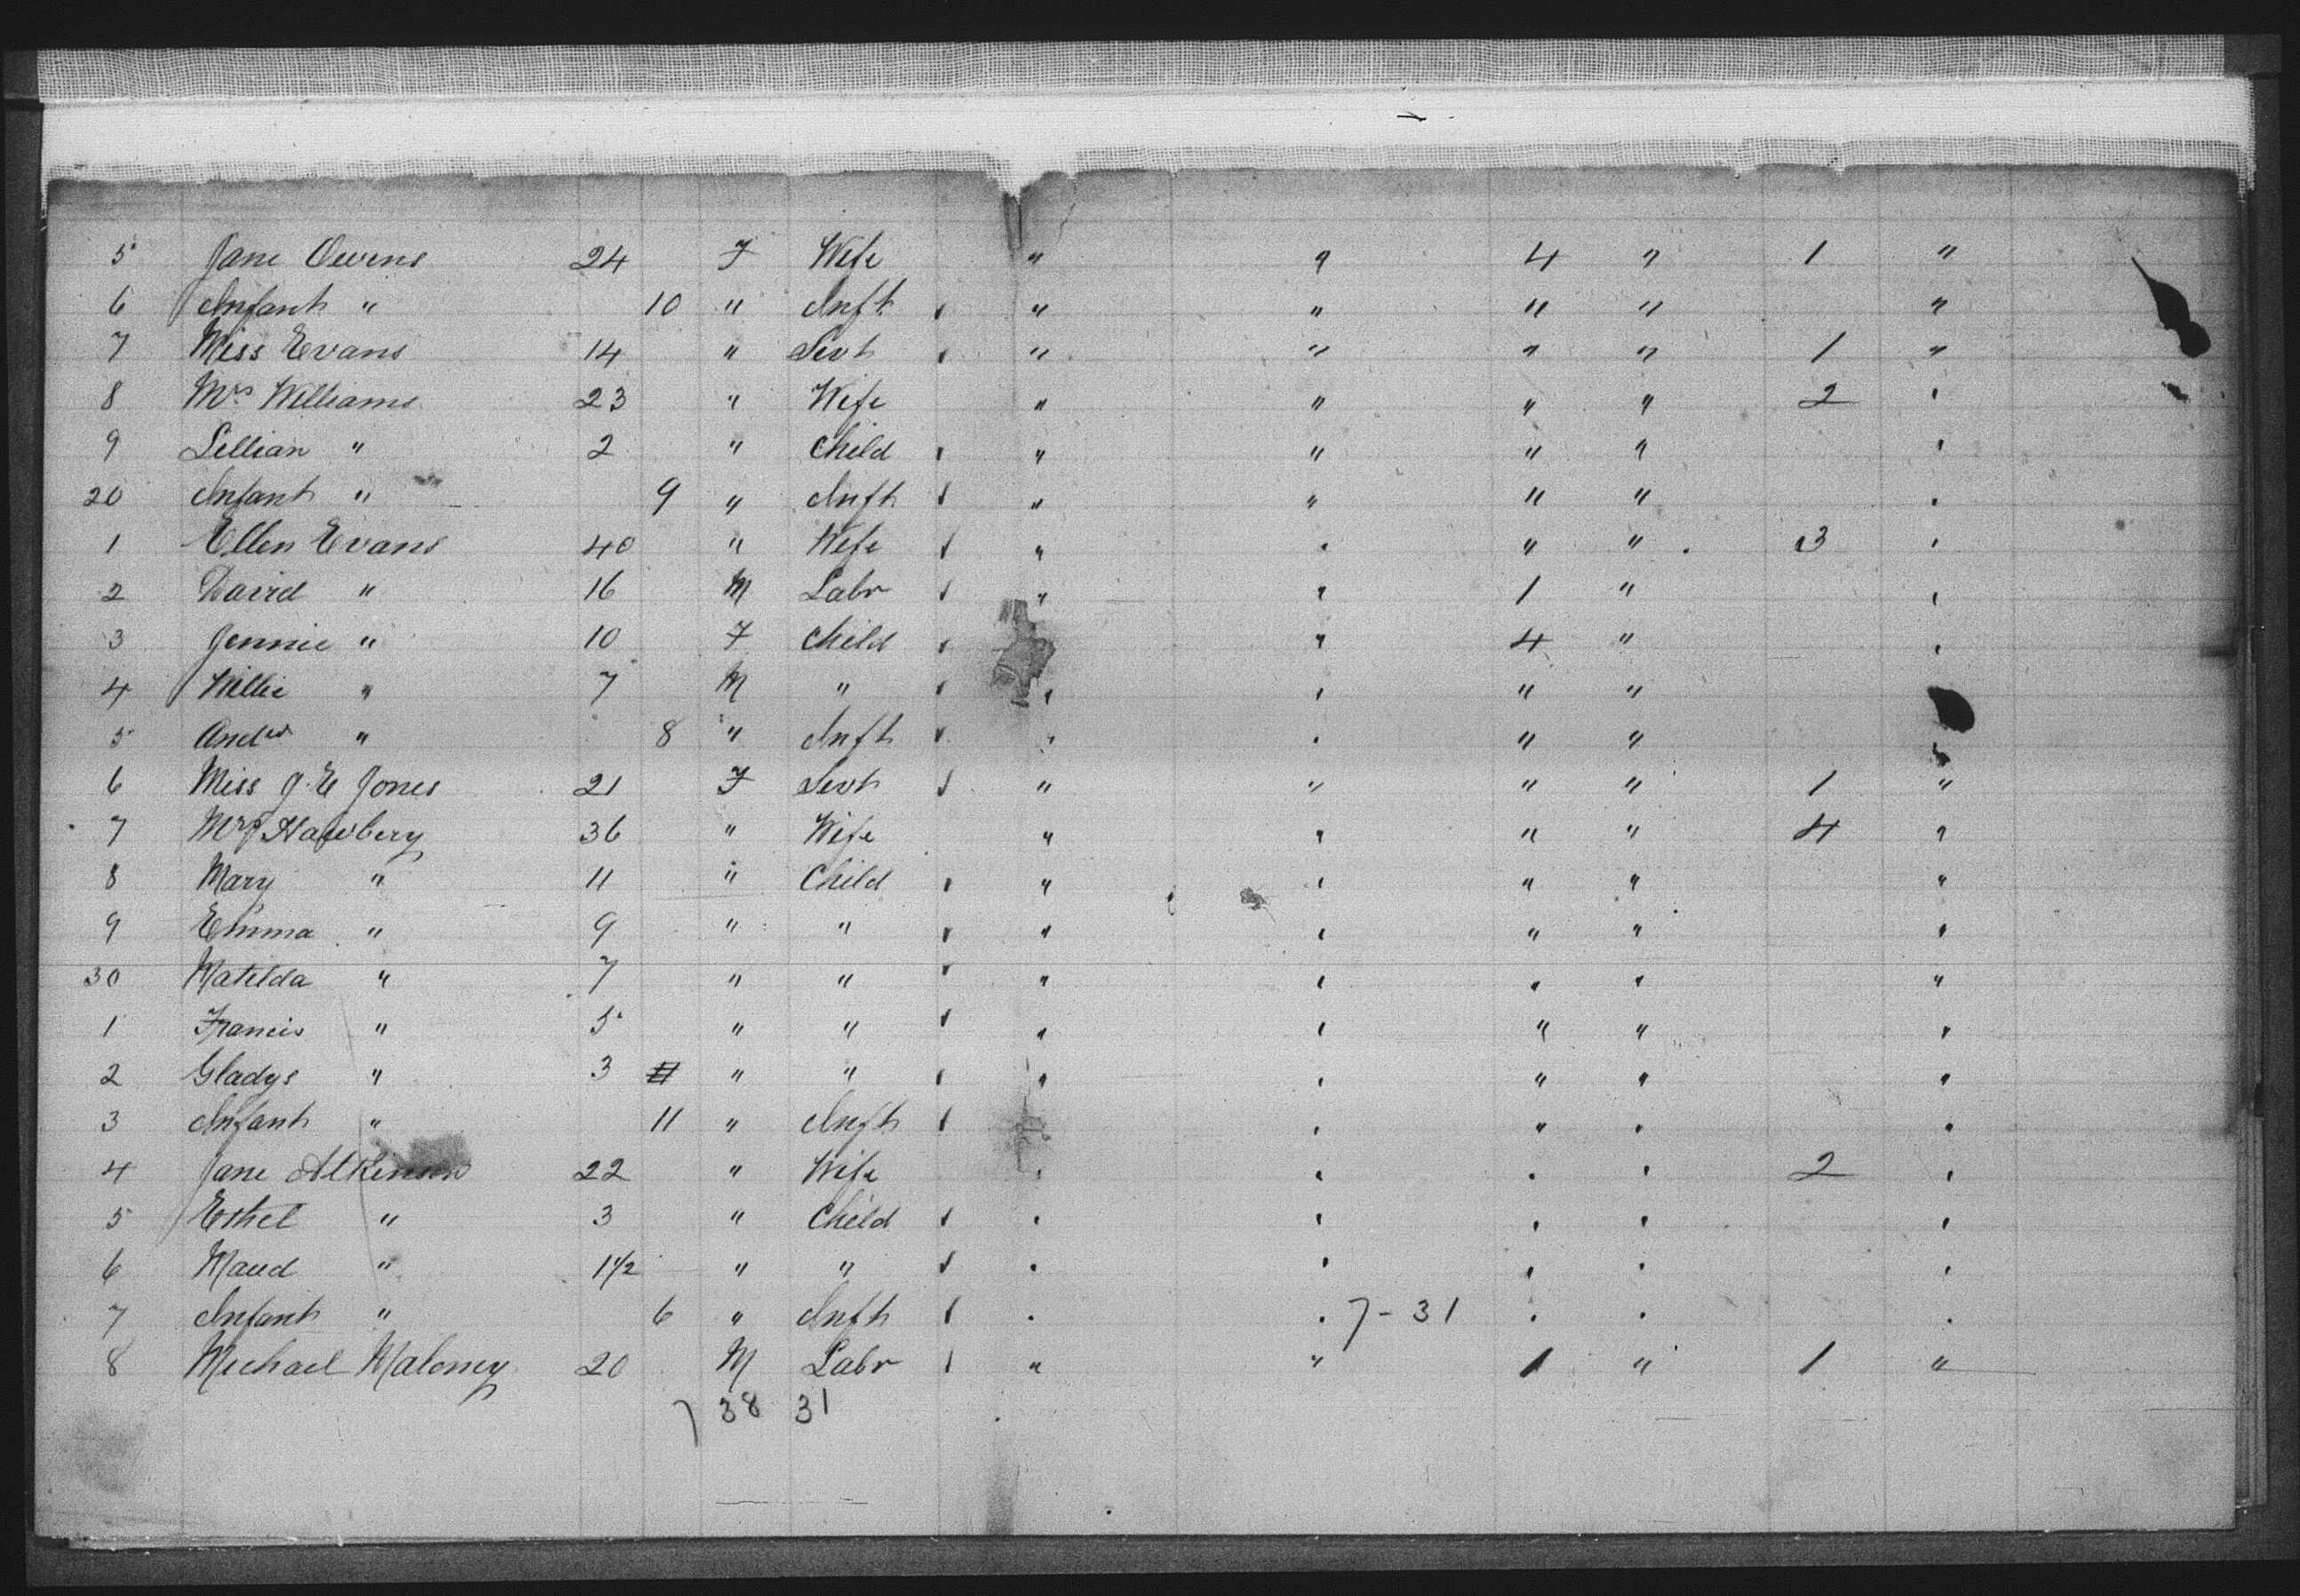 5 Jane Owens 24 F Wife " " 4 " 1 "
6 Infant " 10 " Inft " " " " "
7 Miss Evans 14 " Servt " " " " 1 "
8 Mrs Williams 23 " Wife " " " " 2 "
9 Lillian " 2 " Child " " " " "
20 Infant " 9 " Inft " " " " "
1 Ellen Evans 40 " Wife " " " " 3 "
2 David " 16 M Labr " " 1 " "
3 Jennie " 10 F Child " 4 " "
4 Willie " 7 M " " " " "
5 Andw " 8 " Inft " " " " "
6 Miss J. E Jones 21 F Servt " " " " 1 "
7 Mrs Hawbery 36 " Wife " " " " 4 "
8 Mary " 11 " Child " " " " "
9 Emma " 9 " " " " " " "
30 Matilda " 7 " " " " " " "
1 Francis " 5 " " " " " " "
2 Gladys " 3 " " " " " " "
3 Infant " 11 " Inft " " " "
4 Jane Atkinson 22 " Wife " " " " 2 "
5 Ethel " 3 " Child " " " " "
6 Maud " 1 1/2 " " " " " " "
7 Infant " 6 " Inft " " 7-31 " " "
8 Michael Maloney 20 M Labr " " 1 " 1 "
7 38 31